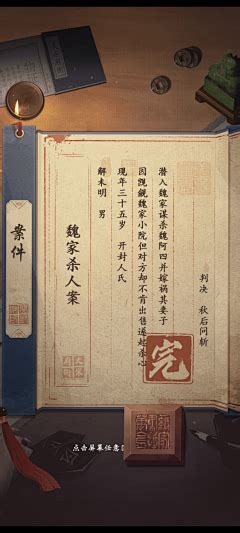 案件
魏家杀人案
解未明 男
现年三十五岁 开封人氏
因觊觎魏家小院但对方却不肯出售遂起杀心
潜入魏家谋杀魏阿四并嫁祸其妻子
判决 秋后问斩
完
点击屏幕任意